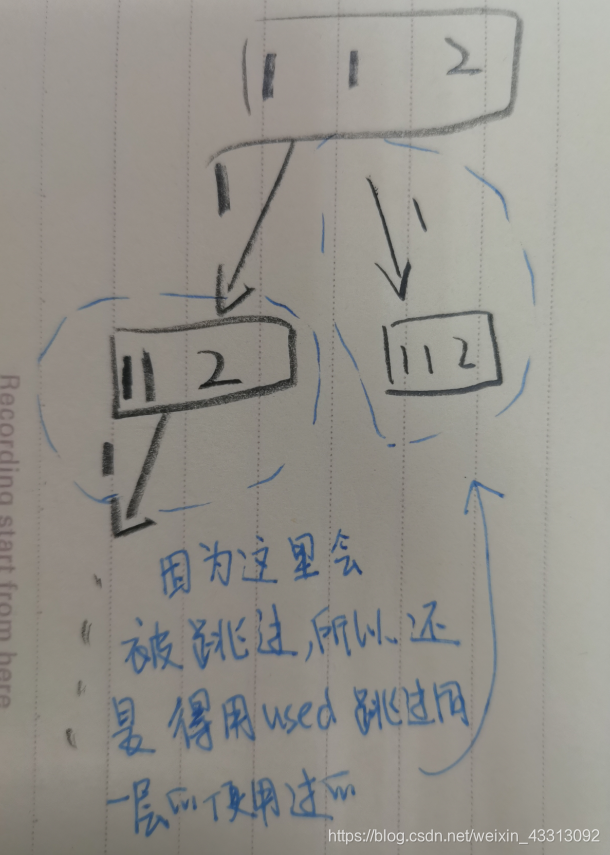 1 1 2
1 1
1 1 2 1 1 2
1
因为这里会
被跳过,所以还
是得用used跳过同
一层的使用过的
Recording start from here
https://blog.csdn.net/weixin_43313092